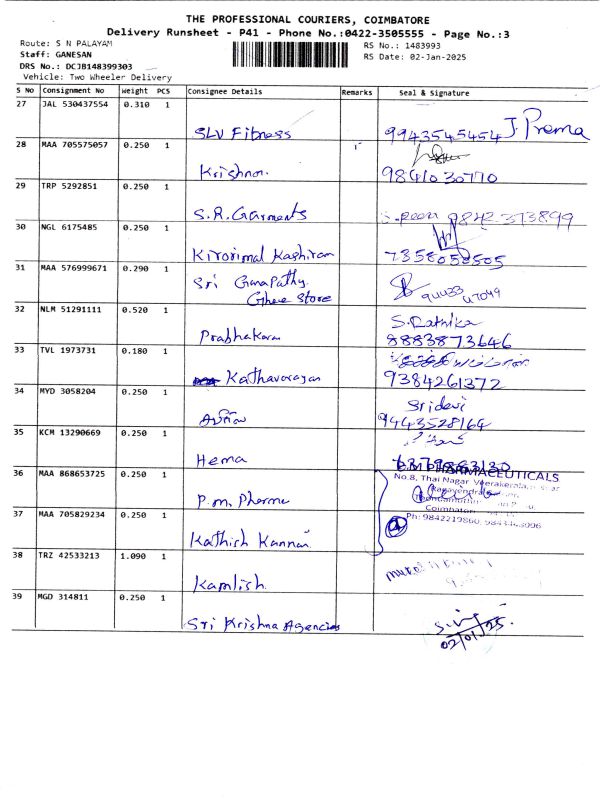 THE PROFESSIONAL COURIERS, COIMBATORE
Delivery Runsheet - P41 - Phone No.:0422-3505555 - Page No.:3
Route: S N PALAYAM
RS No.: 1483993
Staff: GANESAN
RS Date: 02-Jan-2025
DRS No.: DCJB148399303
Vehicle: Two Wheeler Delivery
S No Consignment No Weight PCS Consignee Details Remarks Seal & Signature
27 JAL 530437554 0.310 1
SLV Fitness 9943545454 J. Prema
28 MAA 705575057 0.250 1
Krishnan 9841030770
29 TRP 5292851 0.250 1
S.R.Garments 9842 373899
30 NGL 6175485 0.250 1
Kirorimal Kashiram 7358058505
31 MAA 576999671 0.290 1
Sri Ganapathy
Ghee Store 94433 47049
32 NLM 51291111 0.520 1
S. Rathika
Prabhakaran 8883873646
33 TVL 1973731 0.180 1
Kathavarayan 9384261372
34 MYD 3058204 0.250 1
Sridevi
9443528164
35 KCM 13290669 0.250 1
Hema
36 MAA 868653725 0.250 1
P.M. PHARMACEUTICALS
No.8, Thai Nagar, Veerakeralam
P.m. Pharma
Coimbatore
37 MAA 705829234 0.250 1
Ph: 9842219860
Kathish Kannan
38 TRZ 42533213 1.090 1
Kamlish
39 MGD 314811 0.250 1
Sri Krishna Agencies
02/01/25